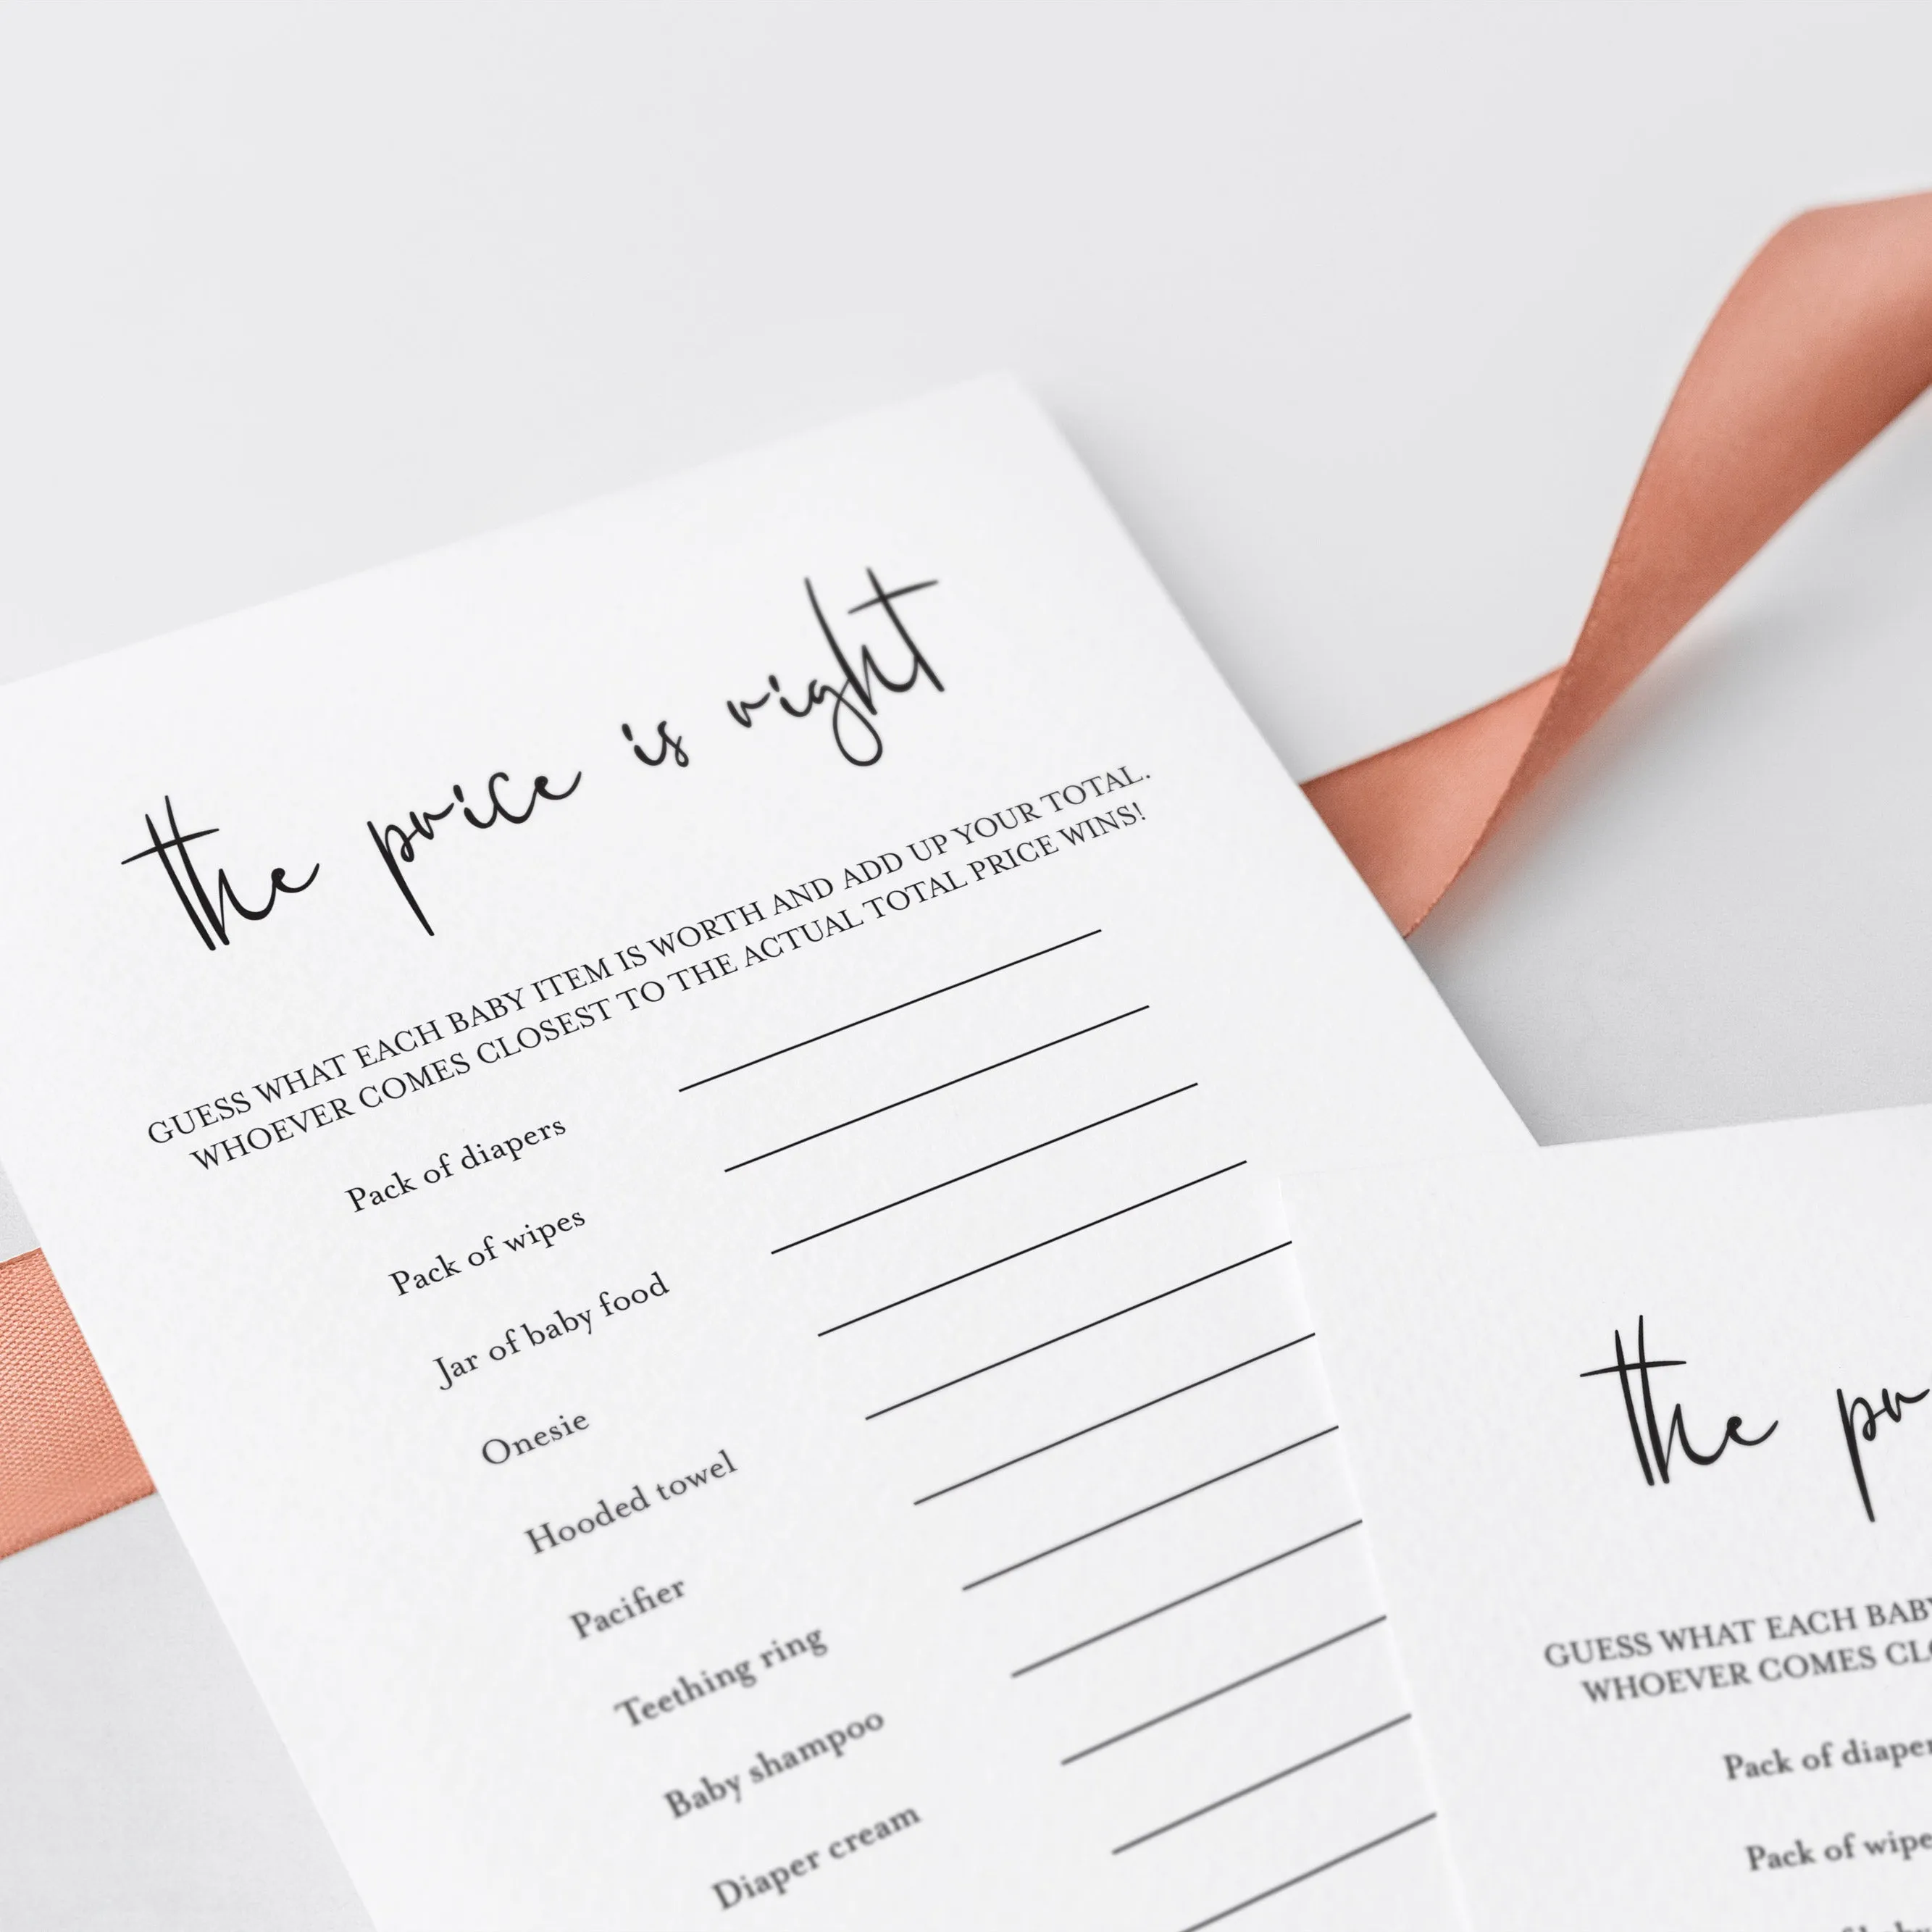 the price is right
GUESS WHAT EACH BABY ITEM IS WORTH AND ADD UP YOUR TOTAL.
WHOEVER COMES CLOSEST TO THE ACTUAL TOTAL PRICE WINS!
Pack of diapers
Pack of wipes
Jar of baby food
Onesie
Hooded towel
Pacifier
Teething ring
Baby shampoo
Diaper cream
the pr
GUESS WHAT EACH BABY
WHOEVER COMES CLO
Pack of diaper
Pack of wipe